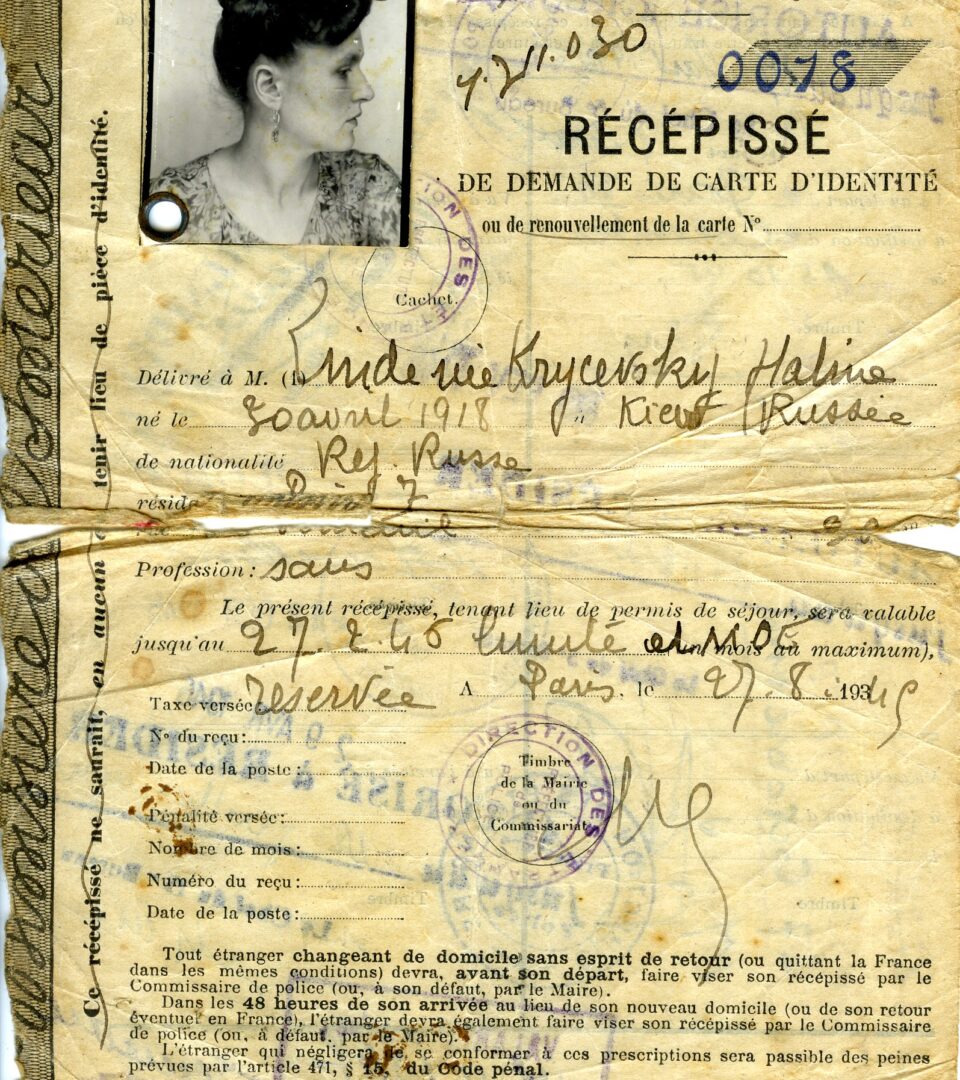 4.211.030
0078
RÉCÉPISSÉ
DE DEMANDE DE CARTE D'IDENTITÉ
ou de renouvellement de la carte No
Cachet.
Délivré à M. (1) Linde née Krycevsky Haline
né le 30 avril 1918 à Kiew Russie
de nationalité Ref. Russe
résid Paris 7
20
Profession : sans
Le présent récépissé, tenant lieu de permis de séjour, sera valable
jusqu'au 27.2.46 mois au maximum),
A Paris, le 27.8.1945
Taxe versée : réservée
No du reçu :
Date de la poste :
Pénalité versée :
Nombre de mois :
Numéro du reçu :
Date de la poste :
DIRECTION DES
Timbre
de la Mairie
ou du
Commissariat
Tout étranger changeant de domicile sans esprit de retour (ou quittant la France
dans les mêmes conditions) devra, avant son départ, faire viser son récépissé par le
Commissaire de police (ou, à son défaut, par le Maire).
Dans les 48 heures de son arrivée au lieu de son nouveau domicile (ou de son retour
éventuel en France), l'étranger devra également faire viser son récépissé par le Commissaire
de police (ou, à défaut, par le Maire).
L'étranger qui négligera de se conformer à ces prescriptions sera passible des peines
prévues par l'article 471, § 15, du Code pénal.
Ce récépissé ne saurait, en aucun tenir lieu de pièce d'identité.